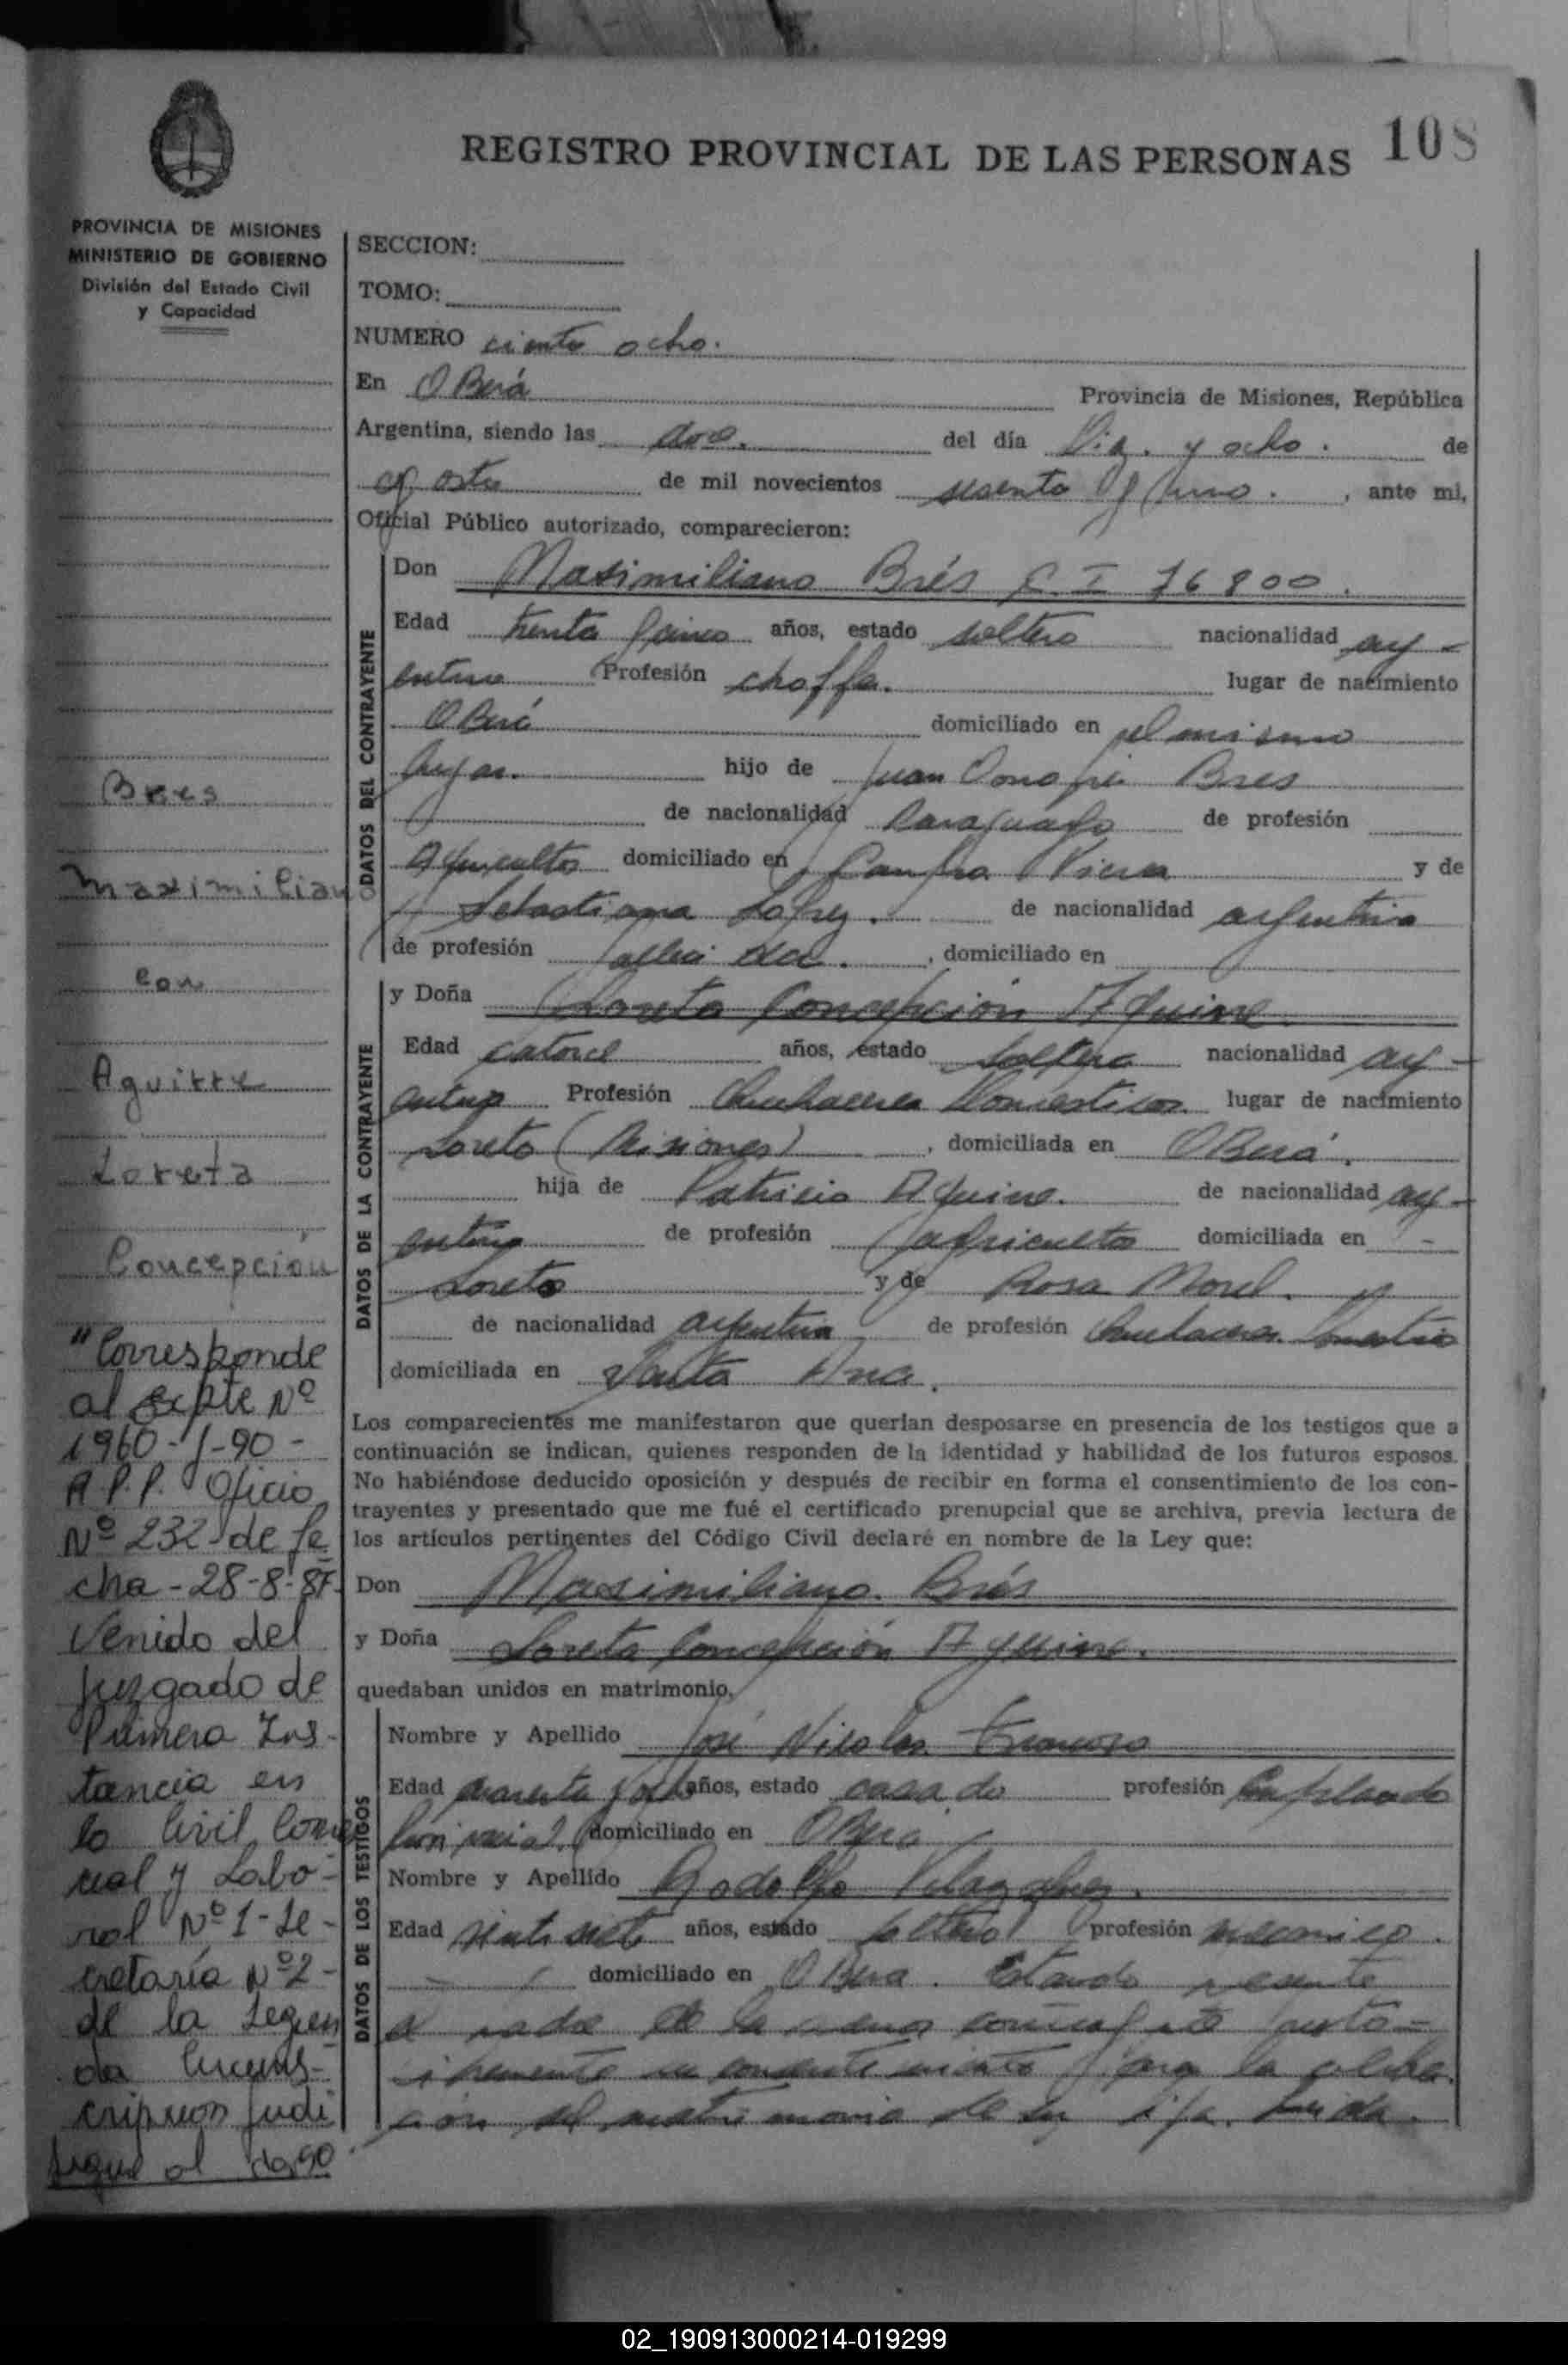 108
REGISTRO PROVINCIAL DE LAS PERSONAS
PROVINCIA DE MISIONES
MINISTERIO DE GOBIERNO
División del Estado Civil
y Capacidad
SECCION:
TOMO:
NUMERO ciento ocho.
En Oberá Provincia de Misiones, República
Argentina, siendo las doce. del día Diez y ocho. de
agosto de mil novecientos sesenta y uno. , ante mi,
Oficial Público autorizado, comparecieron:
DATOS DEL CONTRAYENTE
Don Maximiliano Brés C. I 76800.
Edad treinta y cinco años, estado soltero nacionalidad arg-
entino Profesión choffer. lugar de nacimiento
Oberá domiciliado en el mismo
lugar. hijo de Juan Onofre Bres
de nacionalidad Paraguayo de profesión
Agricultor domiciliado en Campo Viera y de
Sebastiana Lopez. de nacionalidad argentina
de profesión fallecida. , domiciliado en
DATOS DE LA CONTRAYENTE
y Doña Loreta Concepción Aguirre
Edad catorce años, estado soltera nacionalidad arg-
entina Profesión Quehaceres Domésticos lugar de nacimiento
Loreto (Misiones) , domiciliada en Oberá.
hija de Patricio Aguirre. de nacionalidad arg-
entino de profesión agricultor domiciliada en -
Loreto y de Rosa Morel.
de nacionalidad argentina de profesión Quehaceres Domésticos
domiciliada en Santa Ana.
Los comparecientes me manifestaron que querían desposarse en presencia de los testigos que a
continuación se indican, quienes responden de la identidad y habilidad de los futuros esposos.
No habiéndose deducido oposición y después de recibir en forma el consentimiento de los con-
trayentes y presentado que me fué el certificado prenupcial que se archiva, previa lectura de
los artículos pertinentes del Código Civil declaré en nombre de la Ley que:
Don Maximiliano. Brés
y Doña Loreta Concepción Aguirre.
quedaban unidos en matrimonio.
DATOS DE LOS TESTIGOS
Nombre y Apellido José Nicolas
Edad cuarenta y ocho años, estado casado profesión Empleado
domiciliado en Oberá
Nombre y Apellido Rodolfo
Edad veinti siete años, estado soltero profesión mecanico.
domiciliado en Oberá. Estando presente
de la menor contrayente
su consentimiento para la celebra
ción del matrimonio de su hija.
Bres
Maximiliano
con
Aguirre
Loreta
Concepción
"Corresponde
al Expte Nº
1960-J-90-
R.P.P. Oficio
Nº 232-de fe
cha-28-8-87-
Venido del
Juzgado de
Primera Ins-
tancia en
lo Civil Comer
cial y Labo-
ral Nº 1-Se-
cretaría Nº2-
de la Segun
da Circuns-
cripcion Judi
Sigue al dorso
02_190913000214-019299